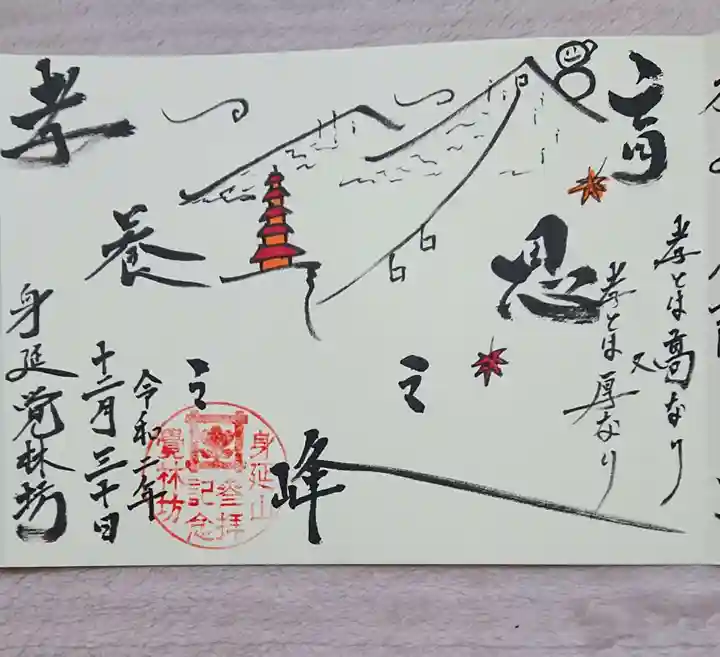 育
恩
之
峰
孝とは高なり
又
孝とは厚なり
孝
養
之
令和二年
十二月三十日
身延覚林坊
身延山
登拝
記念
覺林坊